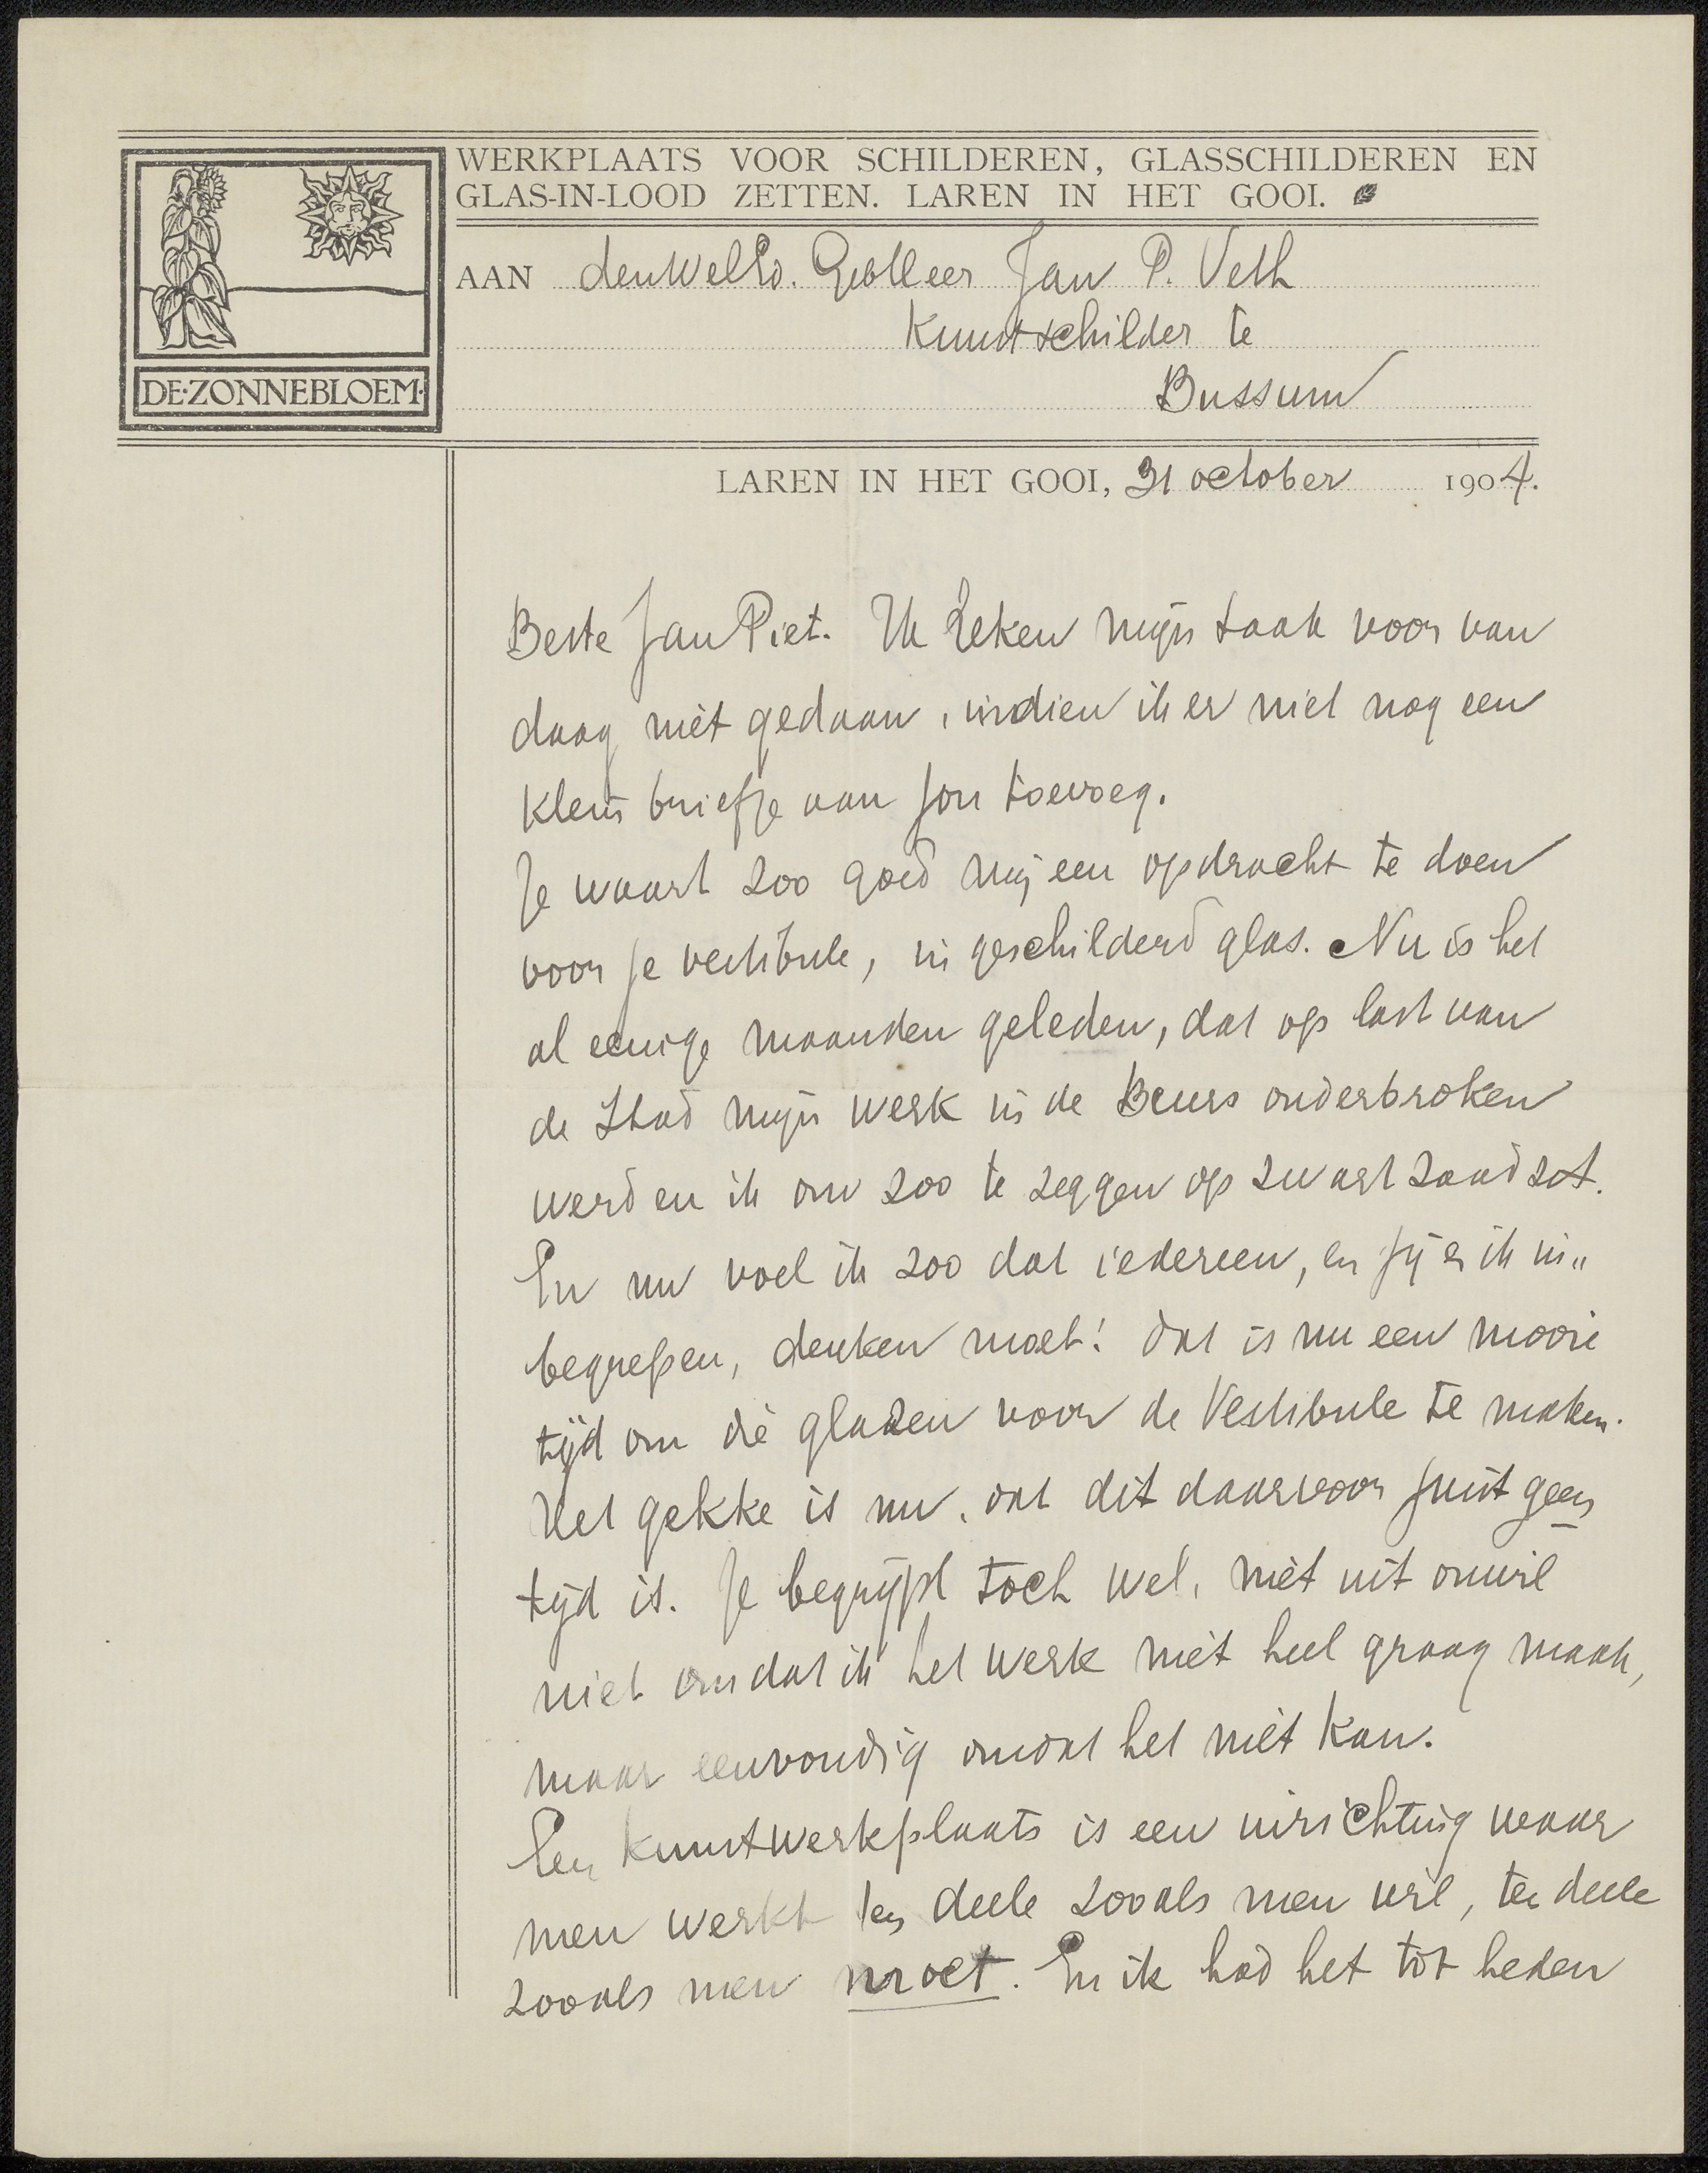 WERKPLAATS VOOR SCHILDEREN, GLASSCHILDEREN EN
GLAS-IN-LOOD ZETTEN. LAREN IN HET GOOI.
DE·ZONNEBLOEM·
AAN den WelEd. Jan P. Veth
Kunstschilder te
Bussum
LAREN IN HET GOOI, 31 october 1904.
Beste Jan Piet. Ik reken mijn taak voor van
daag niet gedaan, indien ik er niet nog een
klein briefje aan jou toevoeg.
Je waart zoo goed mij een opdracht te doen
voor je vestibule, in geschilderd glas. Nu is het
al eenige maanden geleden, dat op last van
de Stad mijn werk in de Beurs onderbroken
werd en ik om zoo te zeggen op zwart zaad zat.
En nu voel ik zoo dat iedereen, en jij er ik in„
begrepen, denken moet! dat is nu een mooie
tijd om die glazen voor de Vestibule te maken.
Het gekke is nu, dat dit daarvoor juist geen
tijd is. Je begrijpt toch wel, niet uit onwil
niet omdat ik het werk niet heel graag maak,
maar eenvoudig omdat het niet kan.
Een kunstwerkplaats is een inrichting waar
men werkt ten deele zooals men wil, ten deele
zooals men moet. En ik had het tot heden